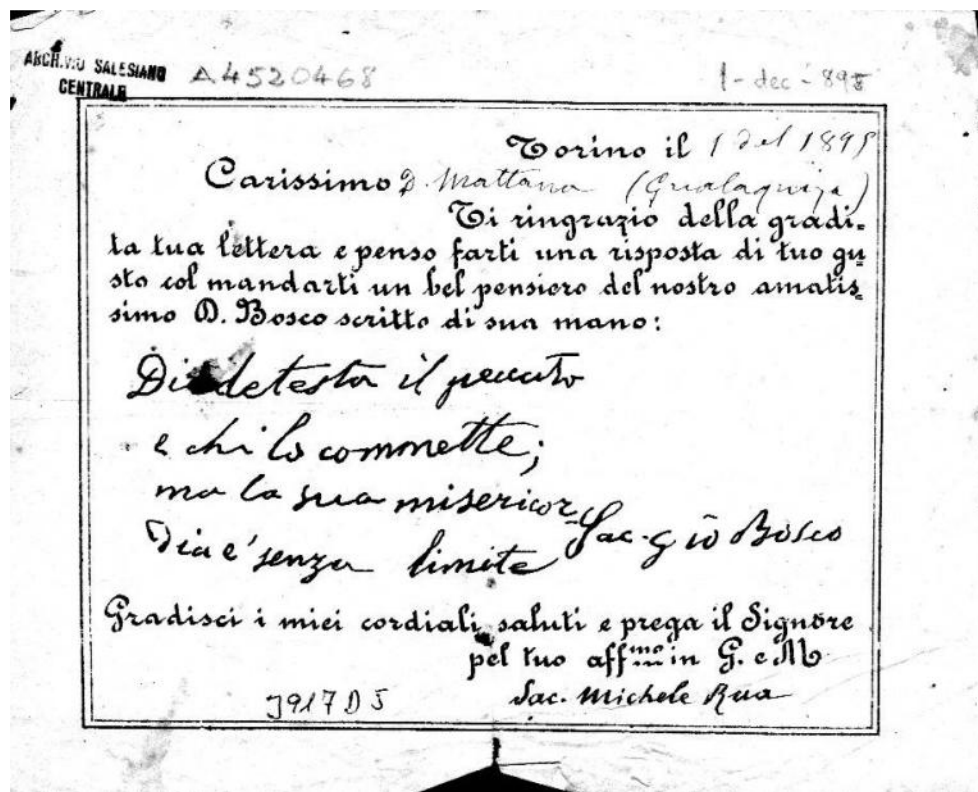 ARCHIVIO SALESIANO
CENTRALE
A4520468
1-dec-895
Torino il 1 1895
Carissimo D. Mattana (Gualaquiza)
Ti ringrazio della gradi-
ta tua lettera e penso farti una risposta di tuo gu
sto col mandarti un bel pensiero del nostro amatis-
simo D. Bosco scritto di sua mano:
Dio detesta il peccato
e chi lo commette;
ma la sua misericor-
dia e' senza limite
Sac. Gio Bosco
Gradisci i miei cordiali saluti e prega il Signore
pel tuo affmo in G. e M.
Sac. Michele Rua
J917D5